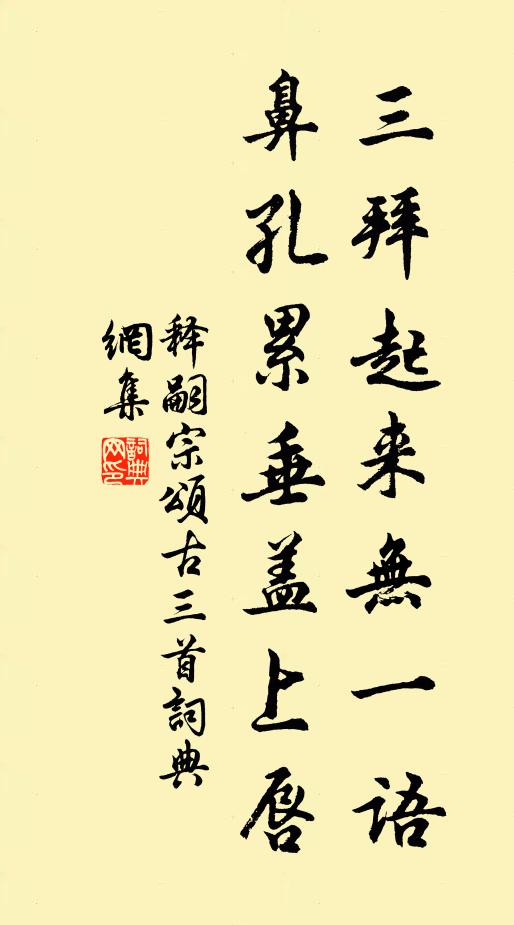 三拜起来無一語
鼻孔累垂盖上唇
释嗣宗頌古三首詞典
網集
詞典网印